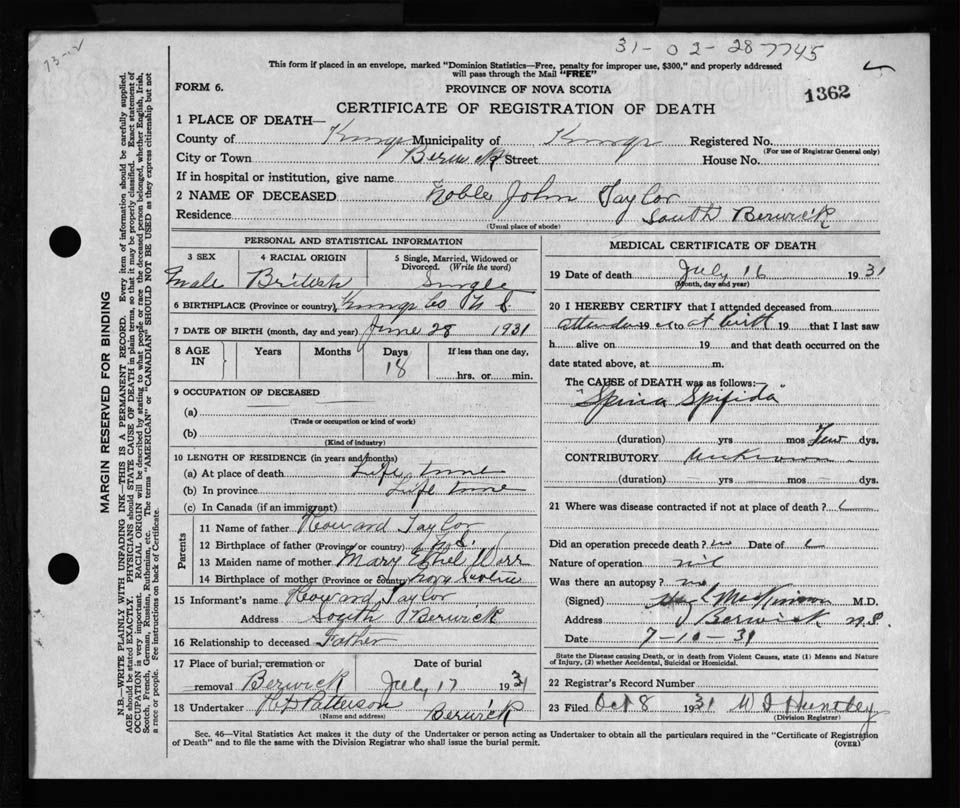 31-02-28 7745
73-12
This form if placed in an envelope, marked "Dominion Statistics—Free, penalty for improper use, $300," and properly addressed
will pass through the Mail "FREE"
FORM 6.
PROVINCE OF NOVA SCOTIA
1362
CERTIFICATE OF REGISTRATION OF DEATH
1 PLACE OF DEATH—
County of Kings Municipality of Kings Registered No.
(For use of Registrar General only)
City or Town Berwick Street House No.
If in hospital or institution, give name
2 NAME OF DECEASED Noble John Taylor
Residence South Berwick
(Usual place of abode)
MARGIN RESERVED FOR BINDING
N.B.—WRITE PLAINLY WITH UNFADING INK—THIS IS A PERMANENT RECORD. Every item of information should be carefully supplied.
AGE should be stated EXACTLY. PHYSICIANS should STATE CAUSE OF DEATH in plain terms, so that it may be properly classified. Exact statement of
OCCUPATION is very important. RACIAL ORIGIN will be described by stating to what people or race the deceased person belonged, whether English, Irish,
Scotch, French, German, Russian, Ruthenian, etc. The terms "AMERICAN" or "CANADIAN" SHOULD NOT BE USED as they express citizenship but not
a race or people. See instructions on back of Certificate.
PERSONAL AND STATISTICAL INFORMATION
3 SEX
4 RACIAL ORIGIN
5 Single, Married, Widowed or
Divorced. (Write the word)
male British Single
6 BIRTHPLACE (Province or country) Kings Co N S.
7 DATE OF BIRTH (month, day and year) June 28 1931
8 AGE IN
Years Months Days If less than one day,
18
hrs. or min.
9 OCCUPATION OF DECEASED
(a)
(Trade or occupation or kind of work)
(b)
(Kind of industry)
10 LENGTH OF RESIDENCE (in years and months)
(a) At place of death Life time
(b) In province Life time
(c) In Canada (if an immigrant)
Parents
11 Name of father Howard Taylor
12 Birthplace of father (Province or country) N.S.
13 Maiden name of mother Mary Ethel
14 Birthplace of mother (Province or country) Nova Scotia
15 Informant's name Howard Taylor
Address South Berwick
16 Relationship to deceased Father
17 Place of burial, cremation or
Date of burial
removal Berwick July 17 1931
18 Undertaker Patterson
(Name and address) Berwick
MEDICAL CERTIFICATE OF DEATH
19 Date of death July 16 1931
(Month, day and year)
20 I HEREBY CERTIFY that I attended deceased from
19 to at birth 19 that I last saw
h alive on 19 and that death occurred on the
date stated above, at m.
The CAUSE of DEATH was as follows:
"Spina Spifida"
(duration) yrs mos Few dys.
CONTRIBUTORY Unknown
(duration) yrs mos dys.
21 Where was disease contracted if not at place of death?
Did an operation precede death? no Date of
Nature of operation nil
Was there an autopsy? no
(Signed) M.D.
Address Berwick N.S.
Date 7-10-31
State the Disease causing Death, or in death from Violent Causes, state (1) Means and Nature
of Injury, (2) whether Accidental, Suicidal or Homicidal.
22 Registrar's Record Number
23 Filed Oct 8 1931 Huntley
(Division Registrar)
Sec. 46—Vital Statistics Act makes it the duty of the Undertaker or person acting as Undertaker to obtain all the particulars required in the "Certificate of Registration
of Death" and to file the same with the Division Registrar who shall issue the burial permit.
(OVER)